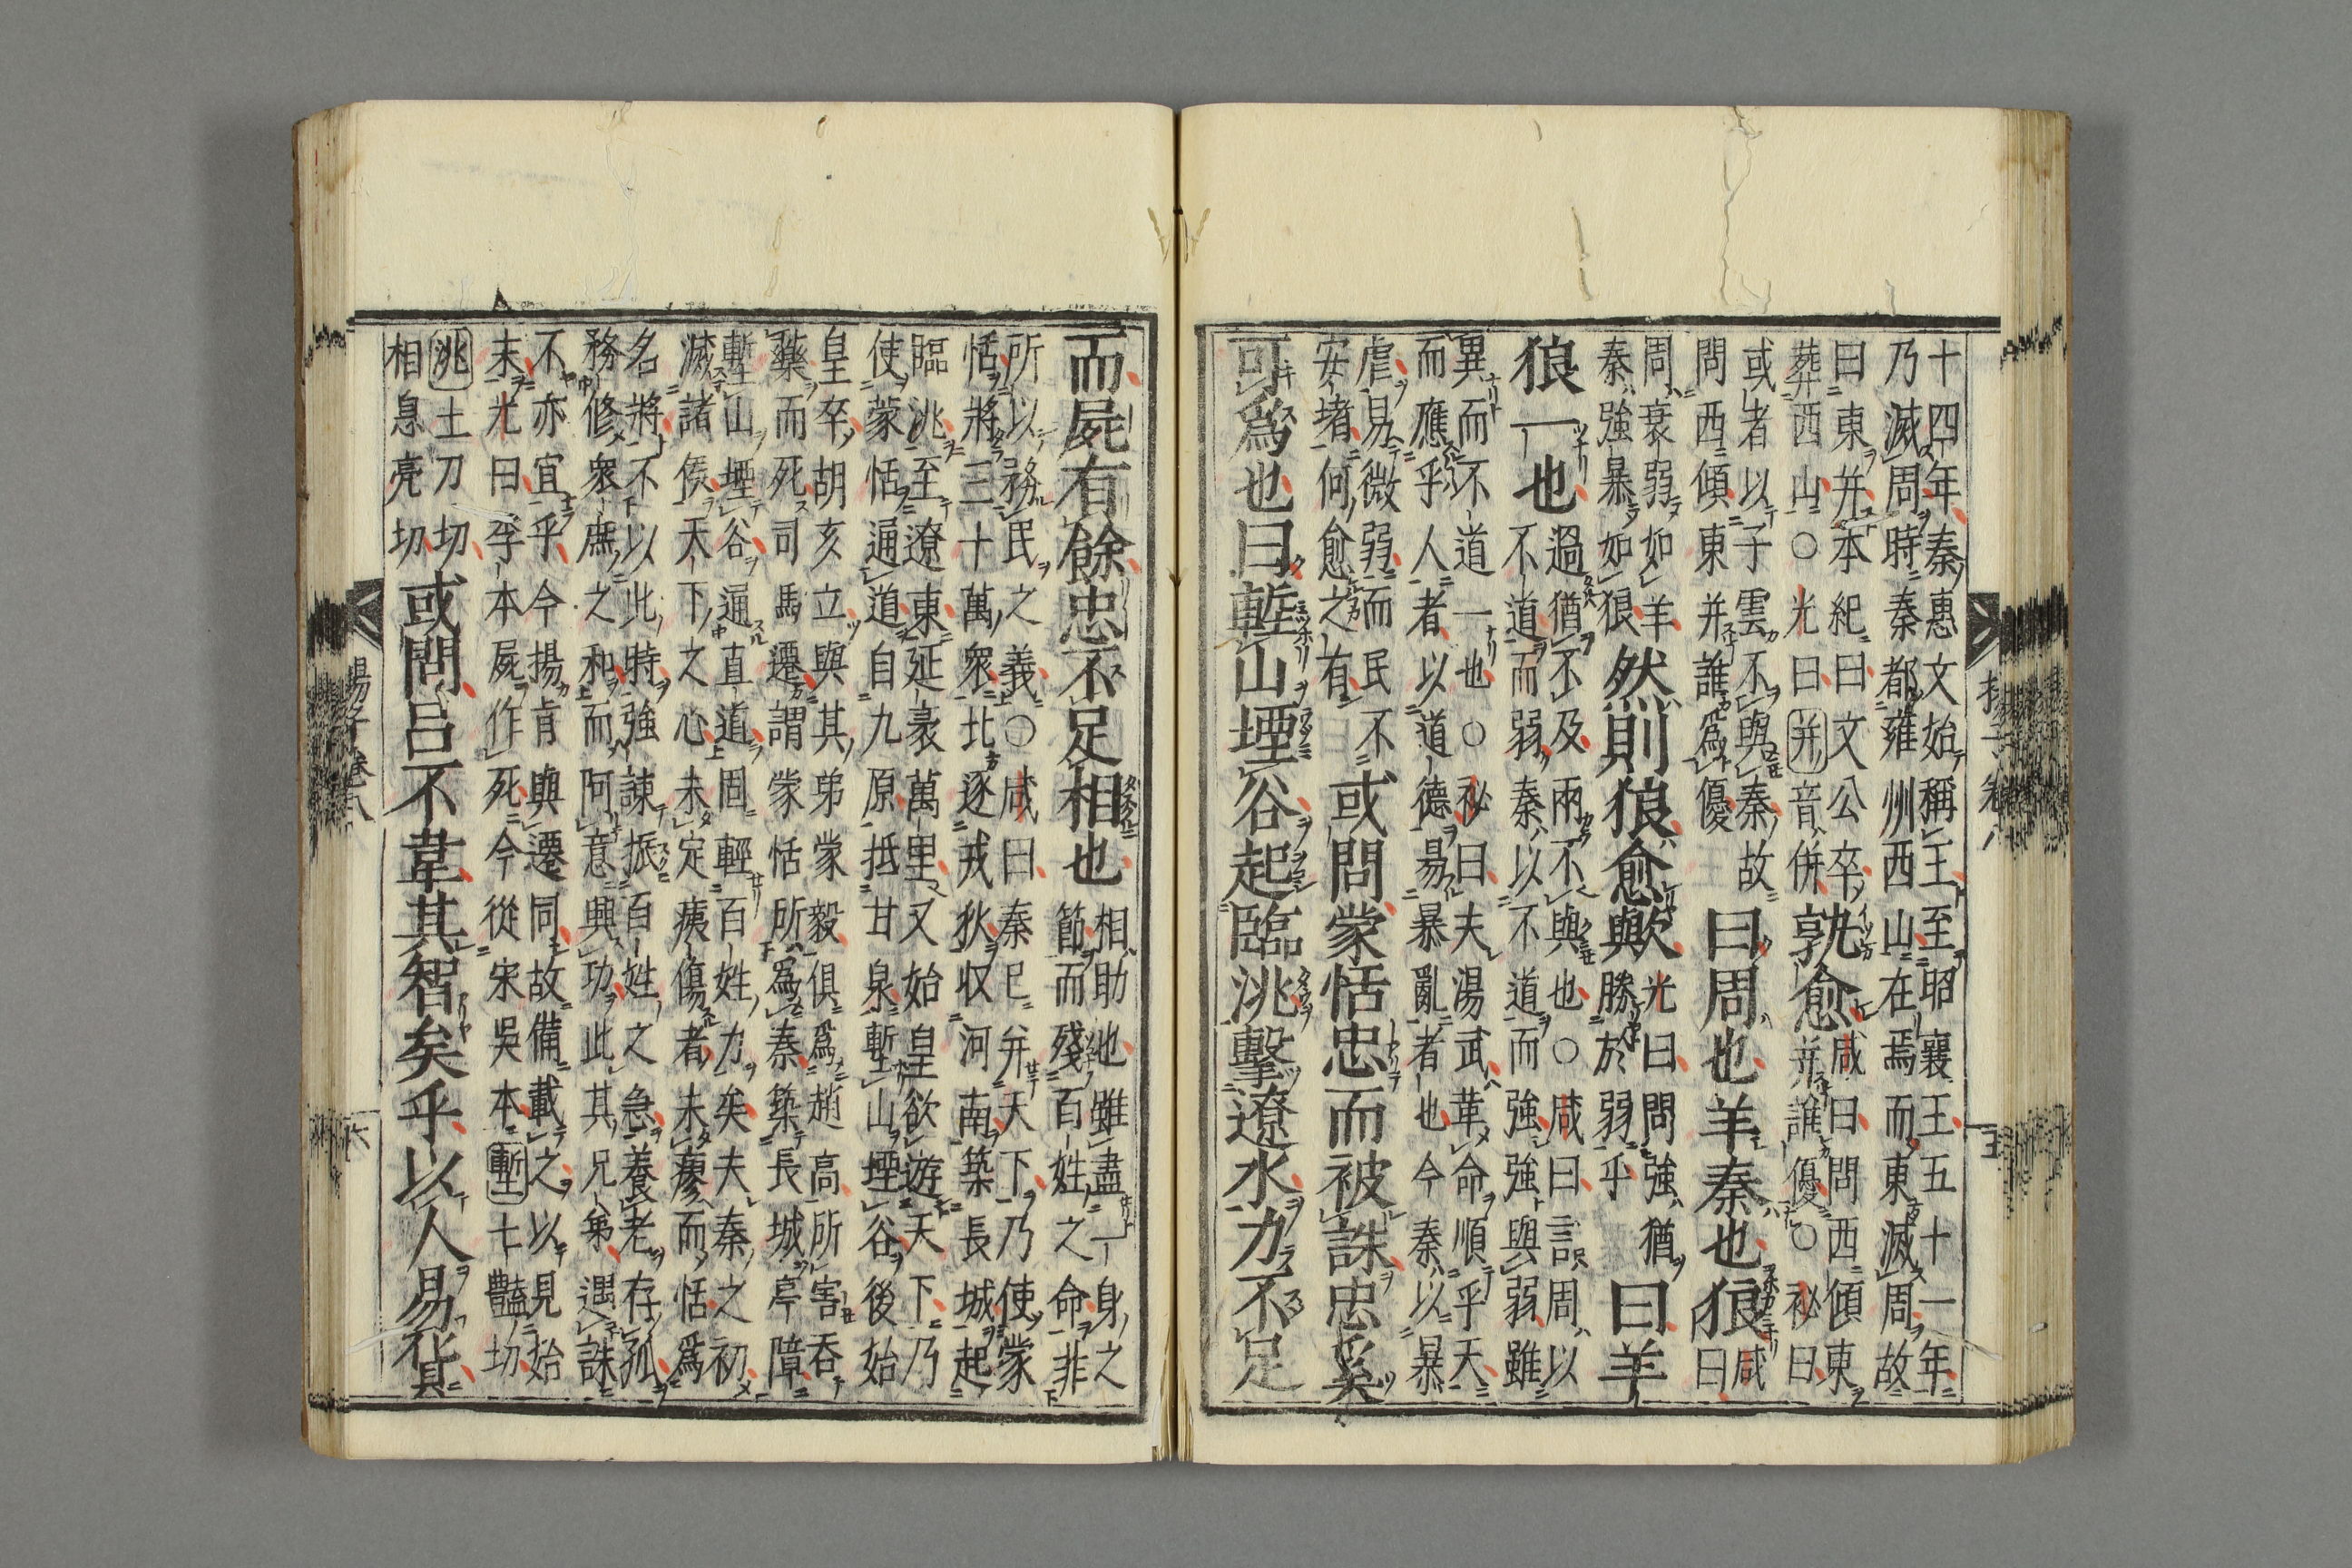 十四年秦惠文始稱王至昭襄王五十一年
乃滅周時秦都雍州西山在焉而東滅周故
曰東并本紀曰文公卒
葬西山○光曰并音併
孰愈
咸曰問西傾東
并誰優○祕曰
或者以子雲不與秦故
問西傾東并誰爲優
曰周也羊秦也狼
咸
曰
周衰弱如羊
秦強暴如狼
然則狼愈歟
光曰問強猶
勝於弱乎
曰羊
狼一也
過猶不及兩不與也○咸曰言周以
不道而弱秦以不道而強強與弱雖
異而不道一也○祕曰夫湯武革命順乎天
而應乎人者以道德易暴亂者也今秦以暴
虐易微弱而民不
安堵何愈之有
或問蒙恬忠而被誅忠奚
可爲也曰塹山堙谷起臨洮擊遼水力不足
而屍有餘忠不足相也
相助也雖盡一身之
節而殘百姓之命非
所以務民之義○咸曰秦已并天下乃使蒙
恬將三十萬衆北逐戎狄収河南築長城起
臨洮至遼東延袤萬里又始皇欲遊天下乃
使蒙恬通道自九原抵甘泉塹山堙谷後始
皇卒胡亥立與其弟蒙毅俱爲趙高所害吞
藥而死司馬遷謂蒙恬所爲秦築長城亭障
塹山堙谷通直道固輕百姓力矣夫秦之初
滅諸侯天下之心未定痍傷者未瘳而恬爲
名將不以此時強諫振百姓之急養老存孤
務修衆庶之和而阿意興功此其兄弟遇誅
不亦宜乎今揚肯與遷同故備載之以見始
末光曰李本屍作死今從宋吳本塹七豔切
洮土刀切
相息亮切
或問呂不韋其智矣乎以人易貨
揚子卷八
五
揚子卷八
六